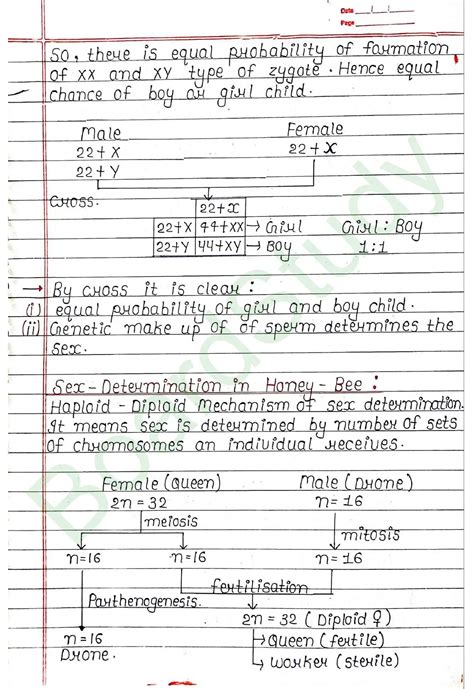 Date / /
Page
So, there is equal probability of formation
of XX and XY type of zygote. Hence equal
chance of boy or girl child.
Male Female
22+X 22+X
22+Y
Cross.
22+X
22+X 44+XX → Girl Girl : Boy
22+Y 44+XY → Boy 1:1
→ By cross it is clear :
(i) equal probability of girl and boy child.
(ii) Genetic make up of of sperm determines the
sex.
Sex-Determination in Honey-Bee :
Haploid-Diploid Mechanism of sex determination.
It means sex is determined by number of sets
of chromosomes an individual receives.
Female (Queen) Male (Drone)
2n = 32 n = 16
meiosis mitosis
n=16 n=16 n=16
fertilisation
Parthenogenesis.
2n = 32 (Diploid ♀)
n=16 → Queen (fertile)
Drone. → Worker (sterile)
BoardStudy